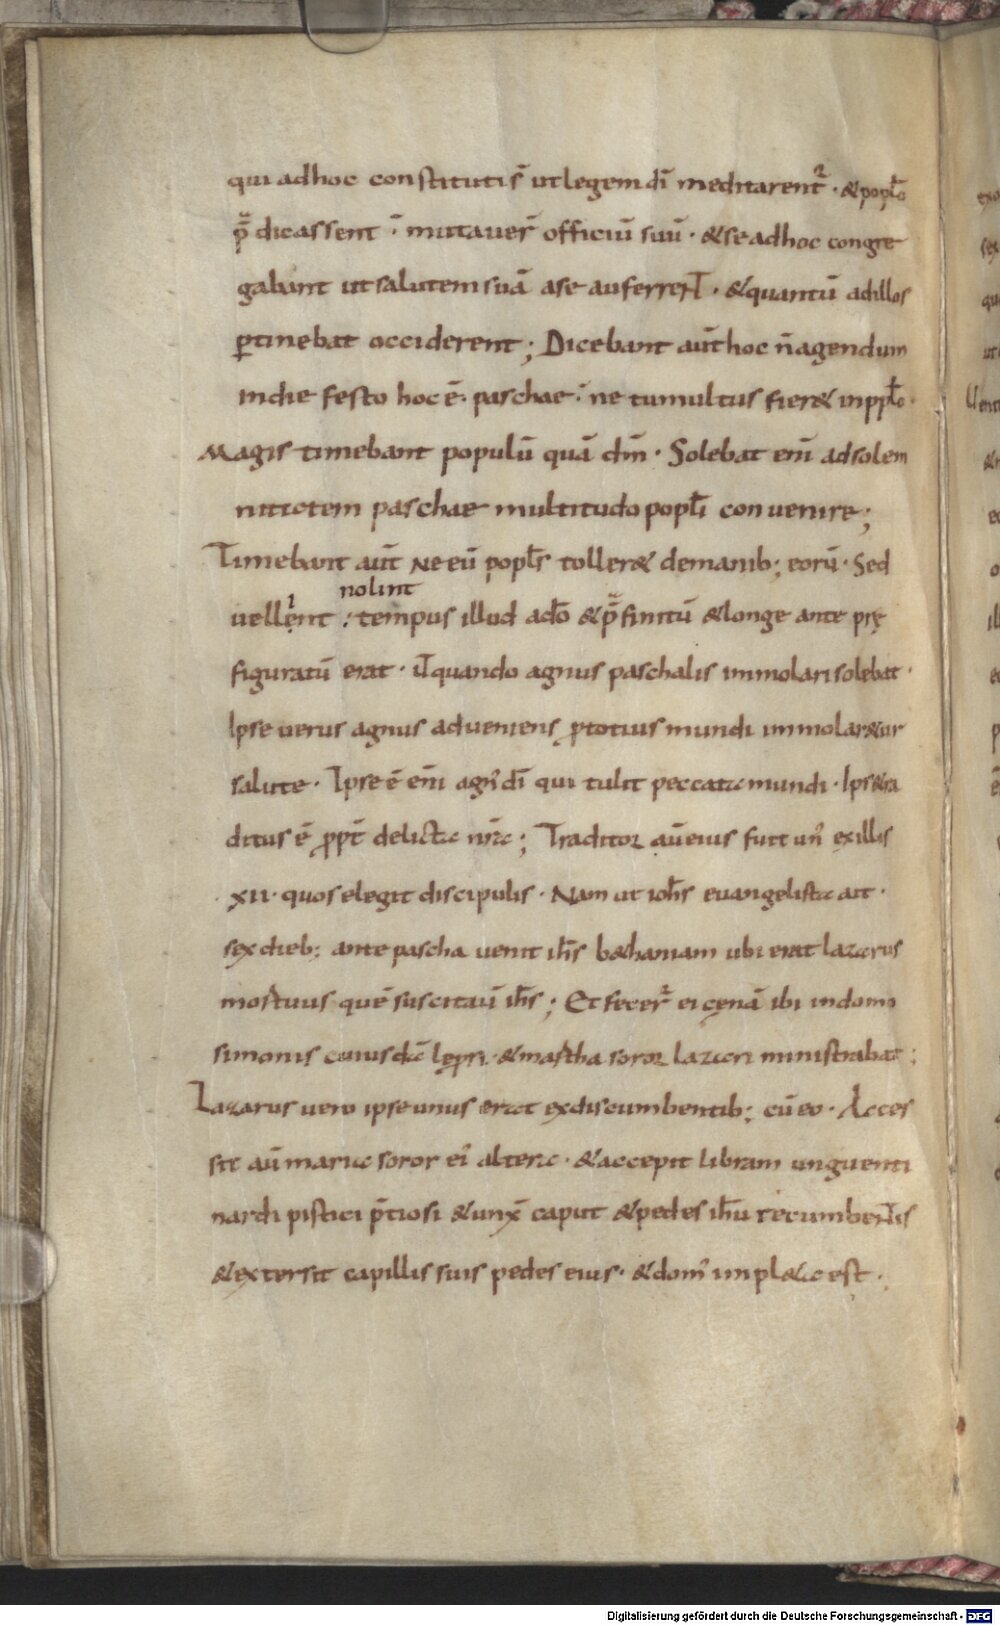 qui ad hoc constitutis̄ ut legem dī meditarent᷑ · & popl̄o
p̄dicassent · mutauer̄ officiū suū · & se ad hoc congre
gabant ut salutem suā a se auferrent · & quantū ad illos
ꝑtinebat occiderent ; Dicebant aūt hoc n̄ agendum
in die festo hoc ē paschae · ne tumultus fier& in ppl̄o ·
Magis timebant populū quā dm̄ · Solebat enī ad solem
nitatem paschae multitudo popl̄i conuenire ;
Timebant aūt ne eū popl̄s toller& de manib; eorū · Sed
nolint
uellent : tempus illud a dō & p̄finitū & longe ante prę
figuratū erat · ut quando agnus paschalis immolari solebat ·
Ipse uerus agnus adueniens ꝓ totius mundi immolar&ur
salute · Ipse ē enī agn᷒ dī qui tulit peccata mundi · Ipse tra
ditus ē ꝓpt̄ delicta nr̄a ; Traditor aū eius fuit un᷒ ex illis
· xii · quos elegit discipulis · Nam ut ioh̄s euangelista ait ·
sex dieb; ante pascha uenit ih̄s b&haniam ubi erat lazarus
mortuus quē suscitau̅ ih̄s ; Et fecer̄ ei cęnā ibi in domo
simonis cuiusdā lepri · & martha soror lazari ministrabat ;
Lazarus uero ipse unus erat ex discumbentib; cū eo · Acces
sit aū maria soror ei᷒ altera · & accepit libram unguenti
nardi pistici p̄tiosi & unx̄ caput & pedes ih̄u recumbentis
& extersit capillis suis pedes eius · & dom᷒ impl&a est ·
Digitalisierung gefördert durch die Deutsche Forschungsgemeinschaft - DFG